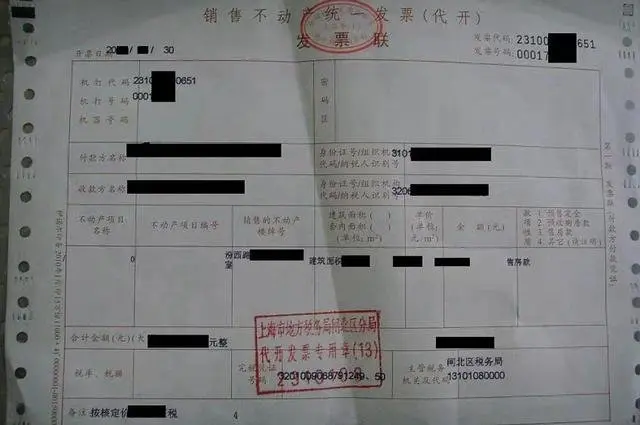 销售不动产统一发票(代开)
发票联
发票代码:23100 651
发票号码:00017
开票日期:20 30
机打代码 23100 0651
机打号码 0001
机器号码
密码区
付款方名称
身份证号/组织机构代码/纳税人识别号 3101
收款方名称
身份证号/组织机构代码/纳税人识别号 3206
不动产项目名称 不动产项目编号 销售的不动产楼牌号 建筑面积( )套内面积( )(单位:m²) 单价(单位:元/m²) 金额(元) 款项性质 1.预售定金 2.预收购房款 3.售房款 4.其它(请注明)
0 汾西路 室 建筑面积 售房款
合计金额(元)(大 元整
上海市地方税务局闸北区分局
代开发票专用章(13)
税率、税额 完税凭证号码 主管税务机关及代码 闸北区税务局
13101080000
备注:按核定价 税 4
第一联 发票联(付款方付款凭证)